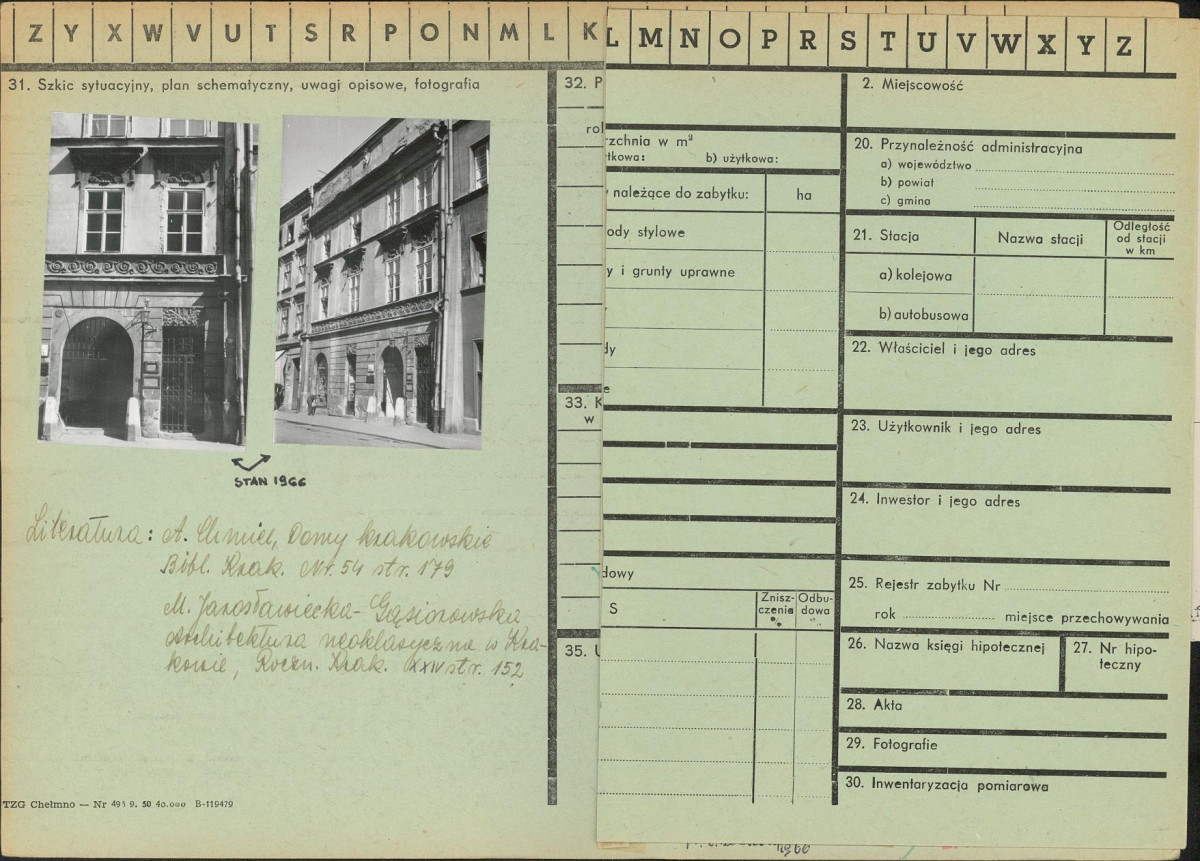 Z Y X W V U T S R P O N M L K
31. Szkic sytuacyjny, plan schematyczny, uwagi opisowe, fotografia
STAN 1966
Literatura: A. Chmiel, Domy krakowskie
Bibl. Krak. Nr. 54 str. 179
M. Jarosławiecka-Gąsiorowska
Architektura neoklasyczna w Kra-
kowie, Roczn. Krak. XXIV str. 152
TZG Chełmno — Nr 495 9. 50 40.000 B-119479
32. P
rol
33. K
w
35. U
L M N O P R S T U V W X Y Z
rzchnia w m²
tkowa: b) użytkowa:
należące do zabytku: ha
ody stylowe
y i grunty uprawne
dy
e
dowy
S Znisz-czenia Odbu-dowa
2. Miejscowość
20. Przynależność administracyjna
a) województwo
b) powiat
c) gmina
21. Stacja Nazwa stacji Odległość od stacji w km
a) kolejowa
b) autobusowa
22. Właściciel i jego adres
23. Użytkownik i jego adres
24. Inwestor i jego adres
25. Rejestr zabytku Nr
rok miejsce przechowywania
26. Nazwa księgi hipotecznej 27. Nr hipo-teczny
28. Akta
29. Fotografie
30. Inwentaryzacja pomiarowa
1966